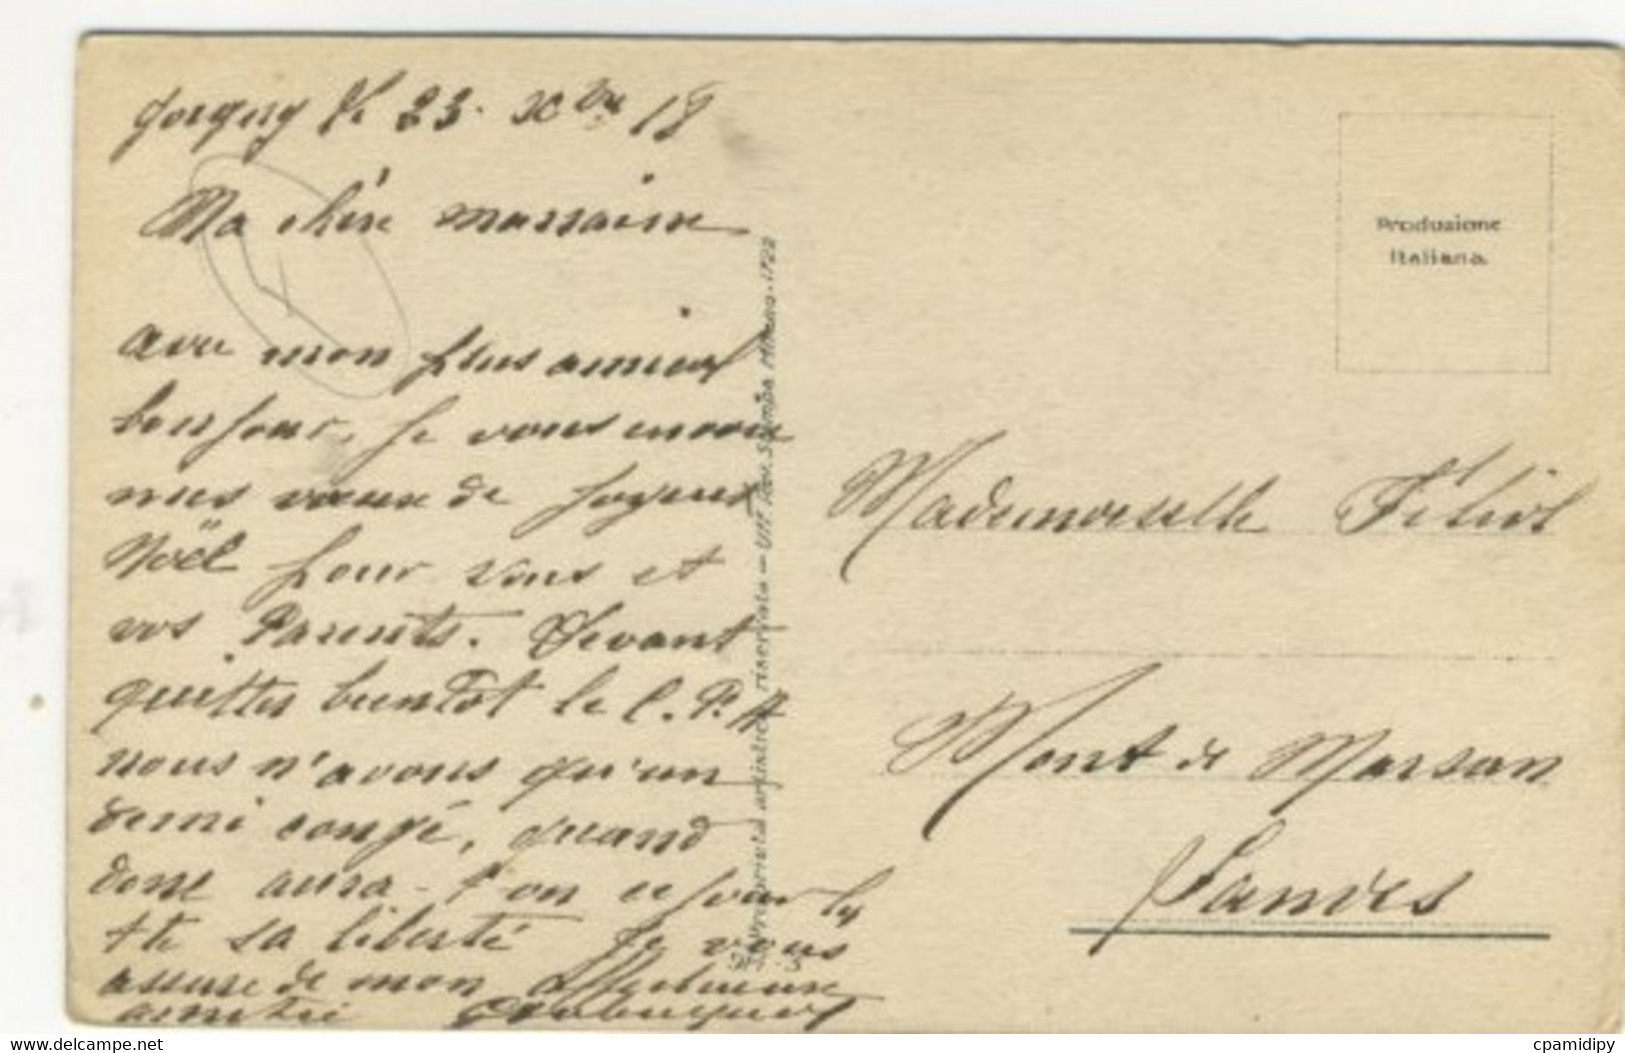 le 23. Xbre 18
Ma chère marraine
avec mon plus amical
bonjour, je vous envoie
mes vœux de joyeux
Noël pour vous et
vos Parents. Devant
quitter bientôt le C.P.A
nous n'avons qu'un
demi congé, quand
donc aura-t'on ce jour là
tte sa liberté Je vous
assure de mon affectueuse
amitié
Proprieta artistica riservata - Uff. Rev. Stampa Milano. 1722
Produzione
Italiana.
Mademoiselle
Mont de Marsan
Landes
www.delcampe.net
cpamidipy